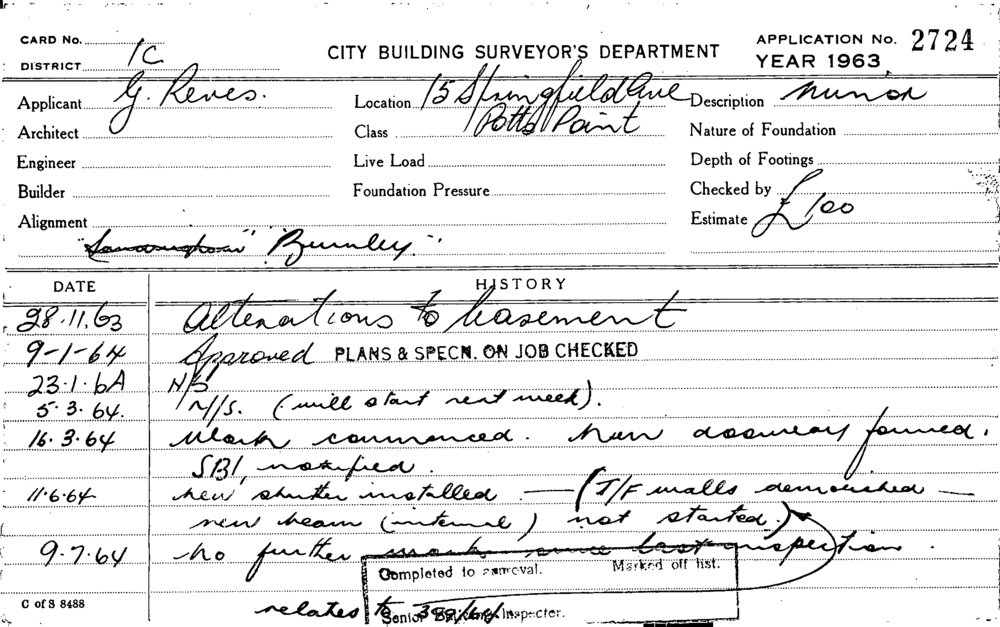 CARD No.
DISTRICT 1C
CITY BUILDING SURVEYOR'S DEPARTMENT
APPLICATION No. 2724
YEAR 1963
Applicant G. Reves.
Location 15 Springfield Ave
Potts Point
Description Minor
Architect
Class
Nature of Foundation
Engineer
Live Load
Depth of Footings
Builder
Foundation Pressure
Checked by
Alignment
Estimate £100
"Burnley"
DATE HISTORY
28.11.63 Alterations to basement
9-1-64 Approved PLANS & SPECN. ON JOB CHECKED
23.1.64 N/S
5.3.64. N/S. (will start next week).
16.3.64 Work commenced. New doorway formed.
SBI notified.
11.6.64 new shutter installed — (T/F walls demolished —
new beam (internal) not started.)
9.7.64 No further work since last inspection.
Completed to approval. Marked off list.
Senior Building Inspector.
relates to 388/64.
C of S 8488